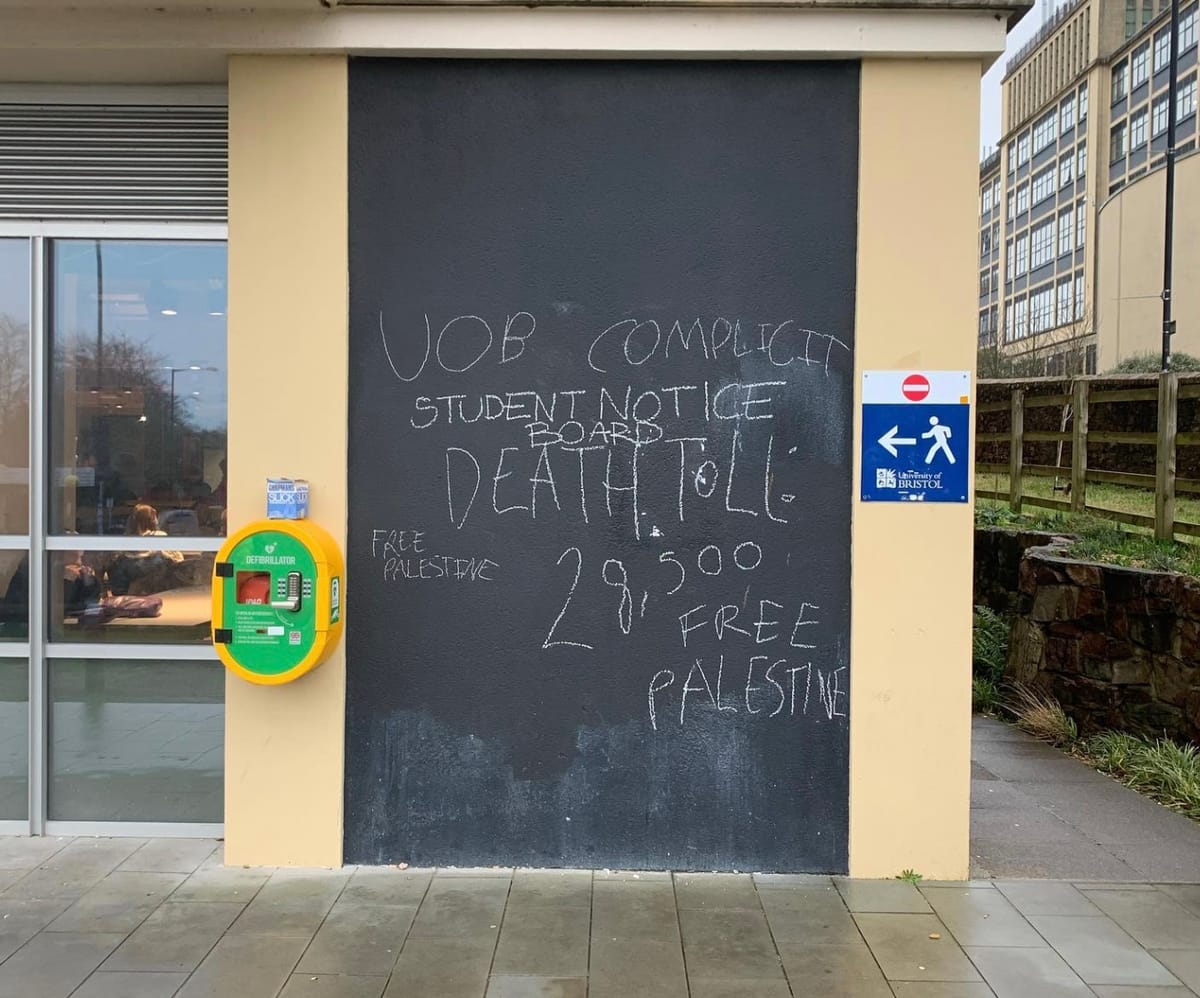 UOB COMPLICIT
STUDENT NOTICE
BOARD
DEATH TOLL:
28,500
FREE
PALESTINE
FREE
PALESTINE
DEFIBRILLATOR
University of
BRISTOL